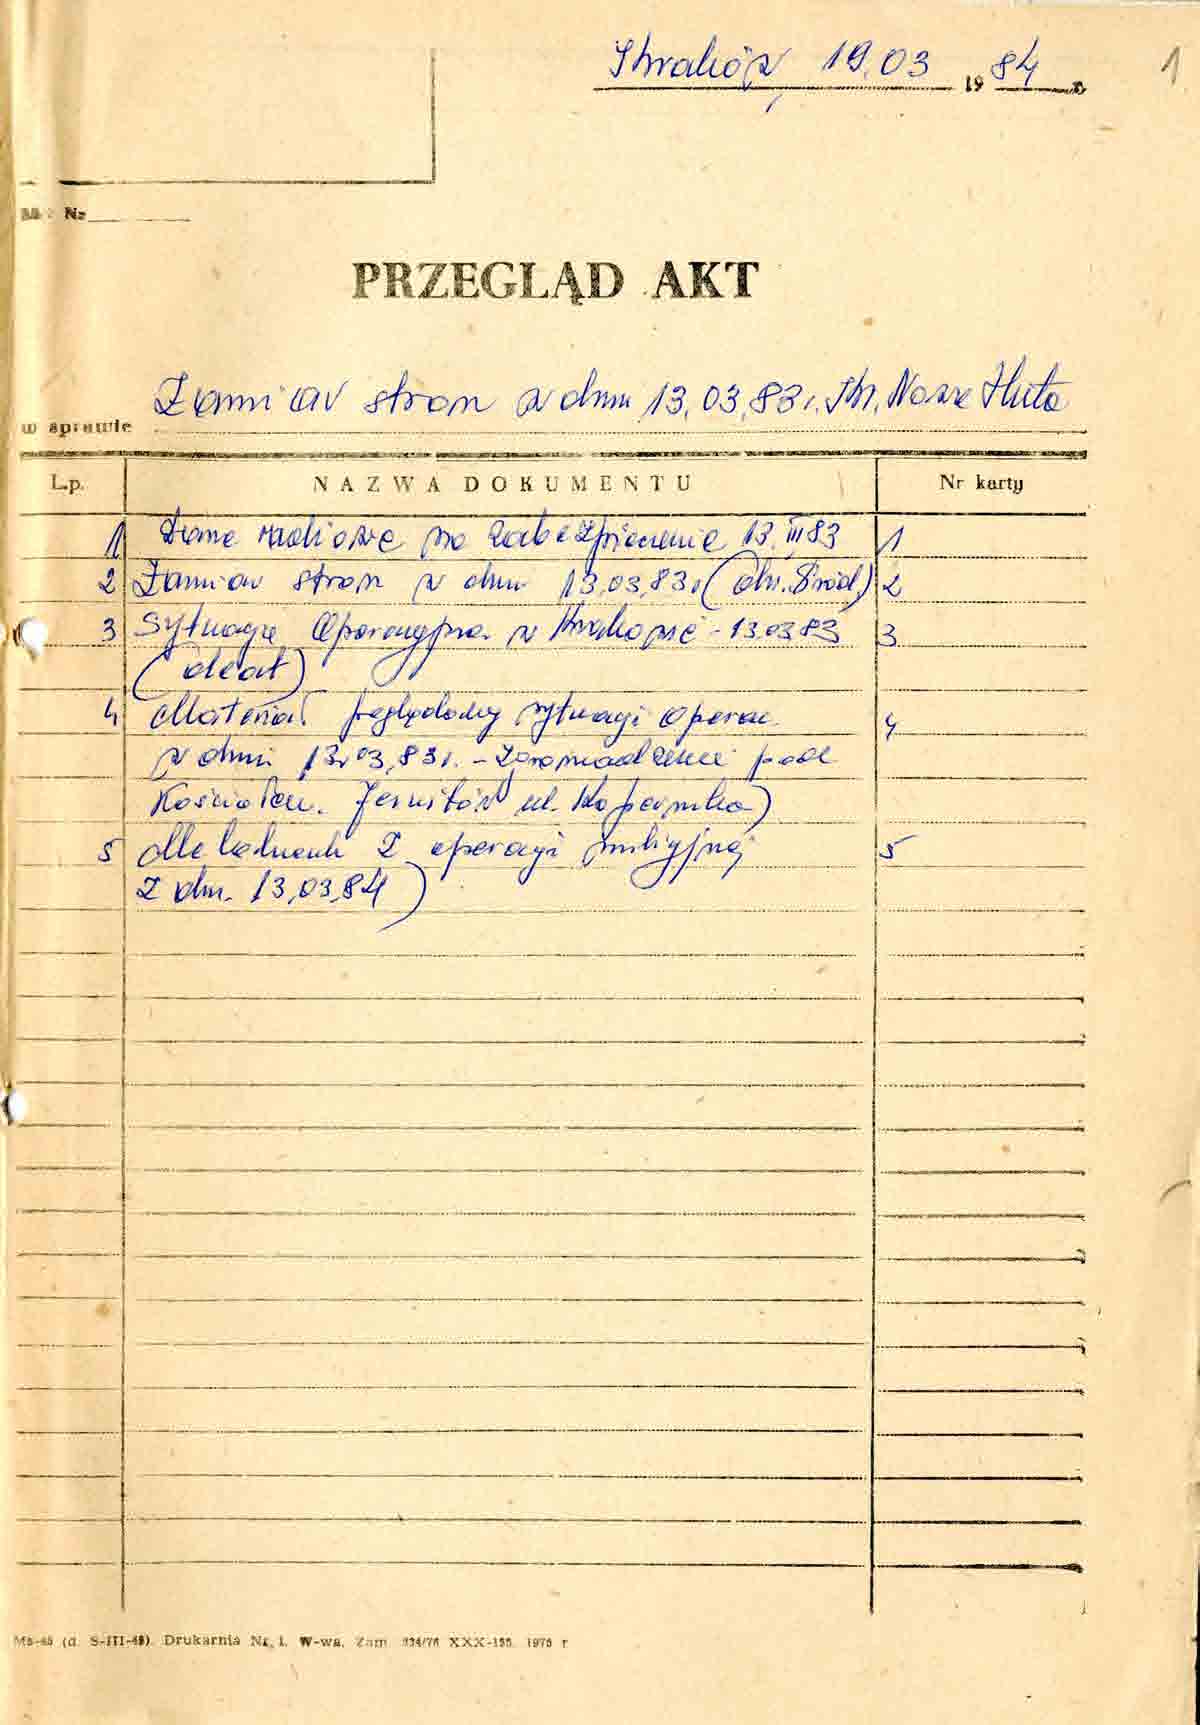 Kraków 19.03 1984 r.
1
Nr
PRZEGLĄD AKT
w sprawie Zamiar stron w dniu 13.03.83 r. Kr. Nowa Huta
L.p. NAZWA DOKUMENTU Nr karty
1 Dane radiowe na zabezpieczenie 13.III.83 1
2 Zamiar stron w dniu 13.03.83 r (dn. Śród.) 2
3 Sytuacja Operacyjna w Krakowie - 13.03.83 3
4 Materiał poglądowy sytuacji operac. 4
w dniu 13.03.83 r. - Zgromadzenie pod
Kościołem. Jezuitów ul. Kopernika)
5 Meldunek z operacji milicyjnej 5
z dn. 13.03.84)
MS-45 (d. S-III-48). Drukarnia Nr 1. W-wa. Zam. 334/76 XXX-155. 1975 r